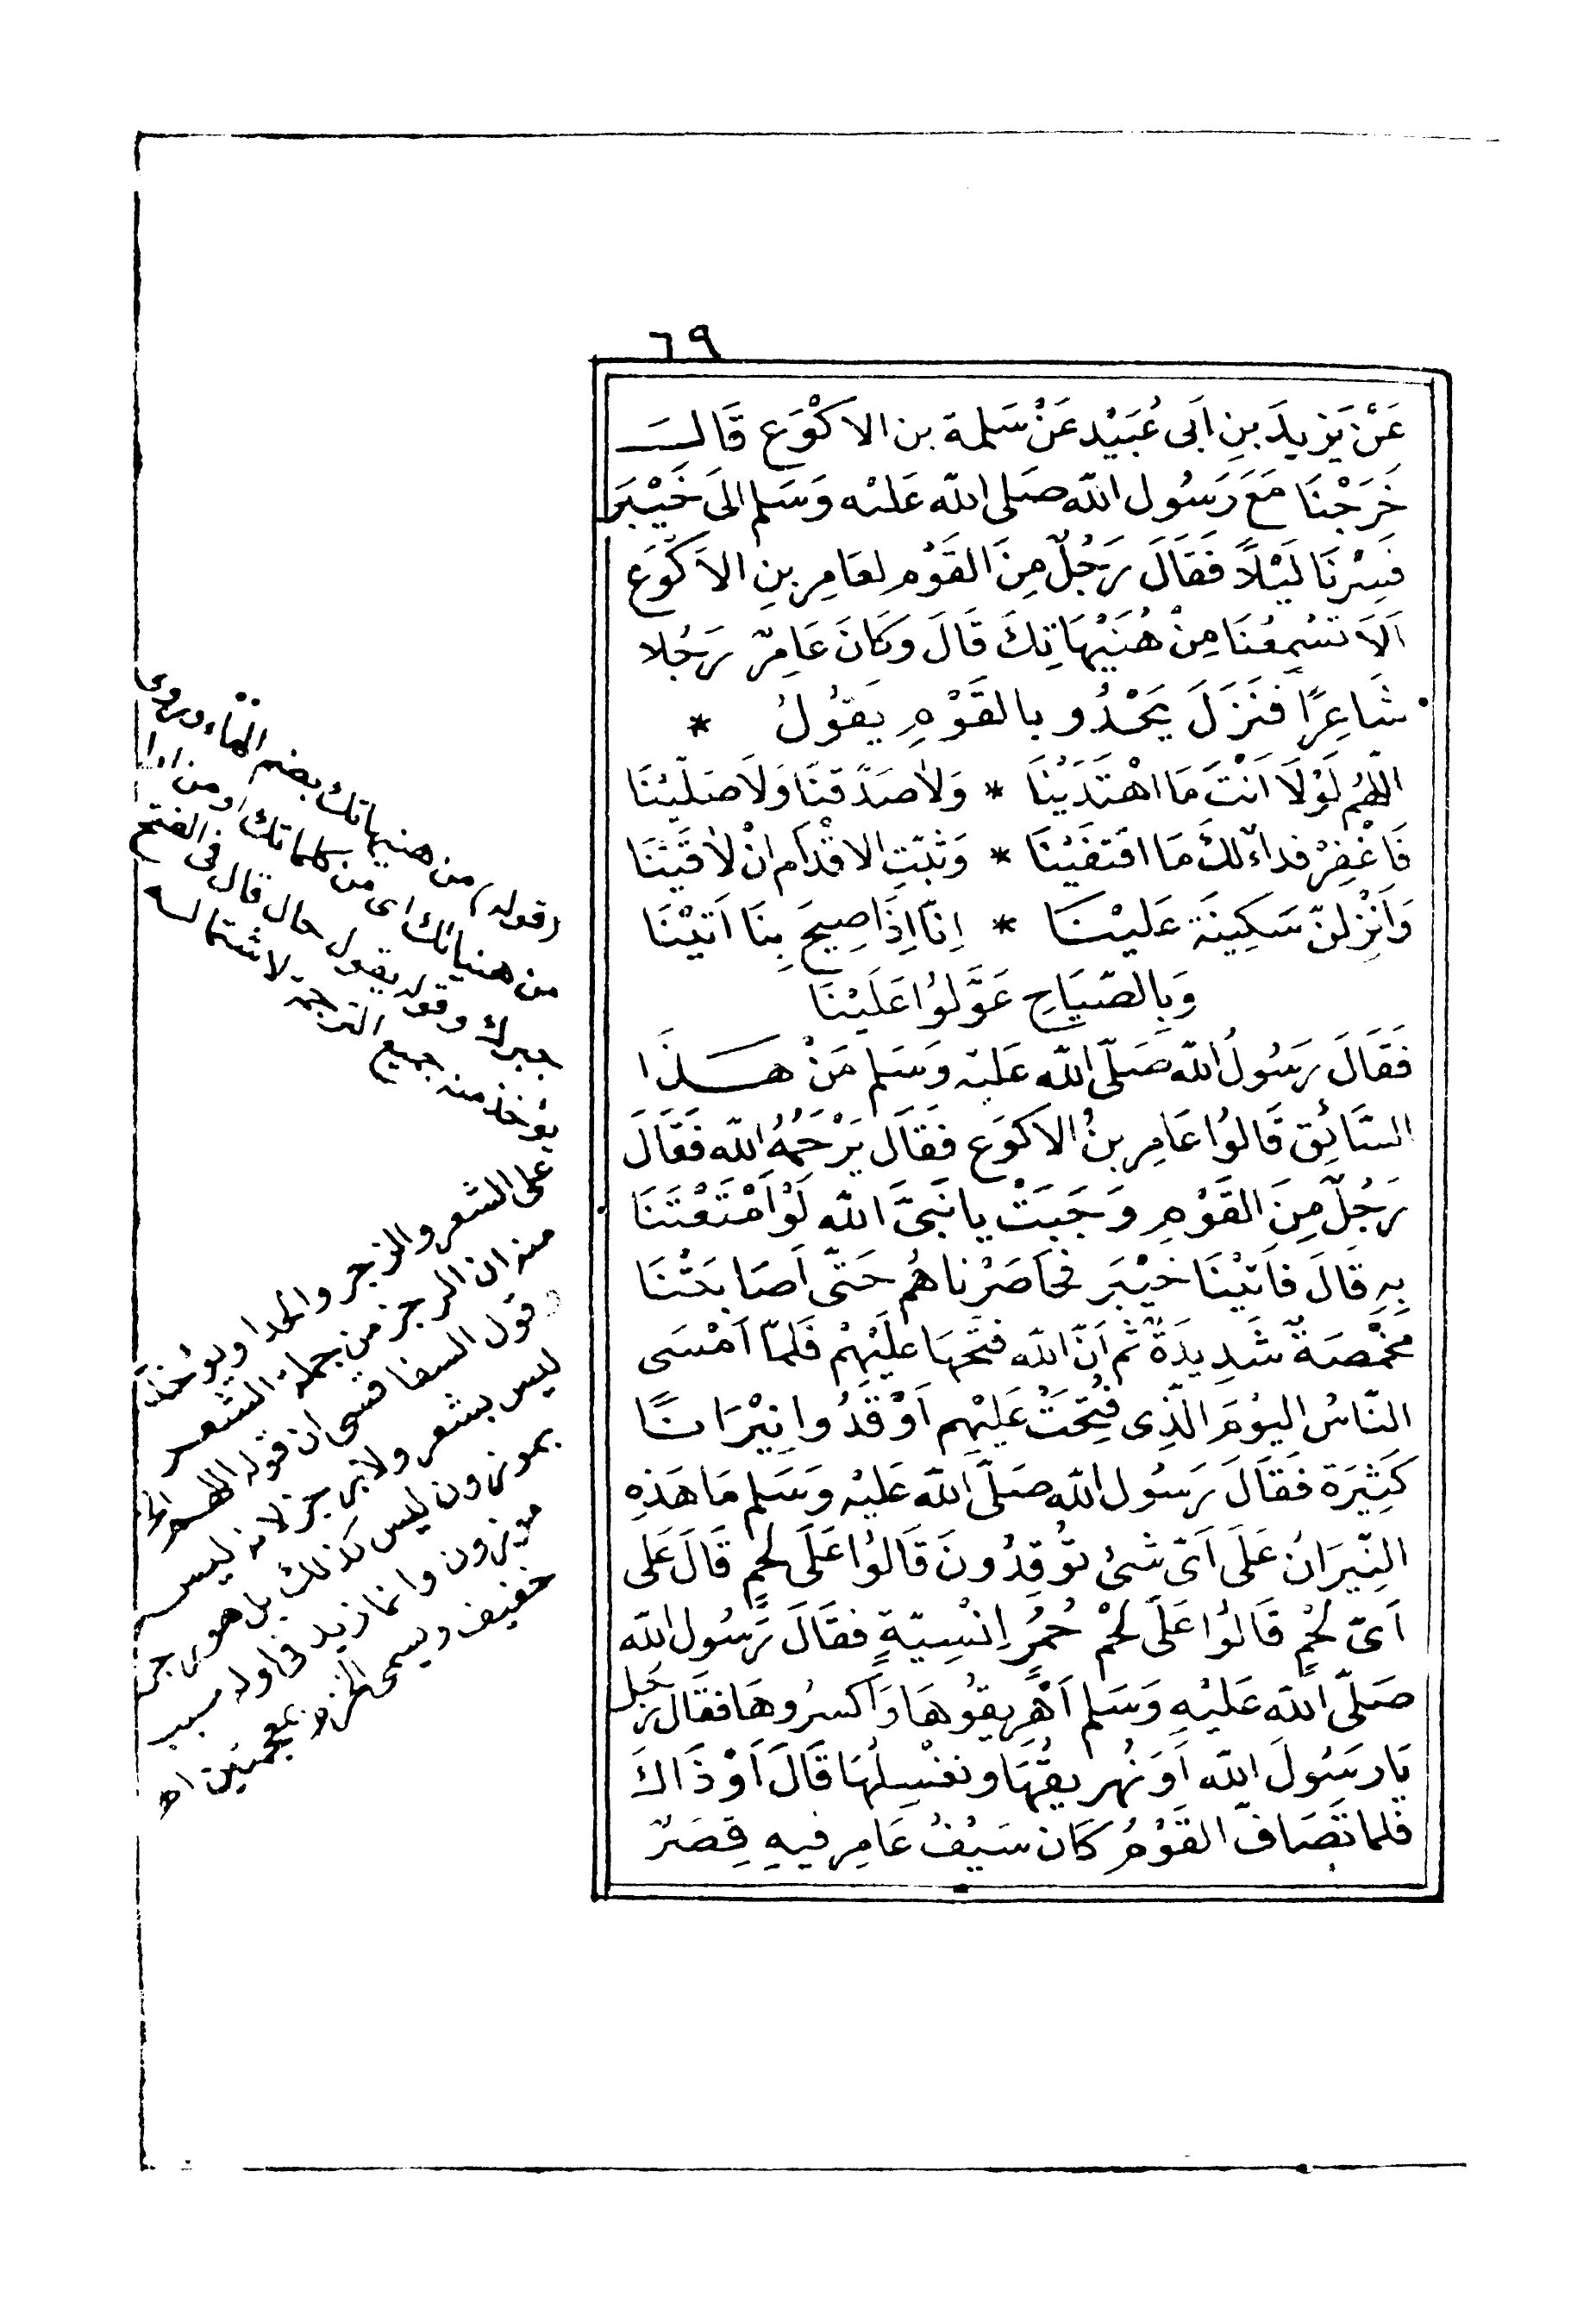 ٦٩
عَنْ يَزِيدَ بنِ اَبى عُبَيْد عَنْ سَلمة بن الاكْوَع قَالَ
خَرَجْنَا مَعَ رَسُول الله صَلى الله عَليْه وَسَلم الَى خَيْبَرَ
فَسِرْنَا لَيْلًا فَقَالَ رَجُلٌ مِنَ القَوْمِ لعَامِر بنِ الاَكْوَعِ
اَلاَ تسْمِعُنَا مِنْ هُنَيْهَاتِكَ قَالَ وَكَانَ عَامِرٌ رَجُلا
شَاعِرًا فنَزَلَ يَحْدُو بالقَوْمِ يَقُولُ *
اللّهُم لَوْلَا اَنْتَ مَا اهْتَدَيْنَا * وَلاَ صَدَّقنَا وَلاَ صَلّيْنَا
فَاغْفِرْ فداءً لكَ مَا اقتفَيْنَا * وَثبّتِ الاقْدَام انْ لاَقَيْنَا
وَاَنْزِلنّ سَكِينَة عَليْنَا * اِنّا اِذَا صِيحَ بِنَا اَتيْنَا
وَبِالصّيَاحِ عَوَّلوُا عَلَيْنَا
فَقَالَ رَسُولُ الله صَلّى الله عَليْه وَسَلم مَنْ هَذَا
السَّائِق قَالوُا عَامِر بنُ الاَكوَع فقَالَ يَرْحَمُهُ الله فَقَالَ
رَجُلٌ مِنَ القَوْمِ وَجَبَتْ يا نَبىَّ الله لَوْ اَمْتَعْتَنَا
بِهِ قَالَ فاَتيْنَا خيْبَر فحَاصَرْناهُم حَتّى اَصَابَتْنَا
مَخْمَصَةٌ شَدِيدَةٌ ثم اَنّ الله فتَحَهَا عَليْهِمْ فَلمّا اَمْسَى
النّاسُ اليوْمَ الَّذِى فُتِحَتْ عَليْهِم اَوْقَدُوا نِيْرَانًا
كَثِيْرَة فَقَالَ رَسُول الله صَلّى الله عَليْه وَسَلم مَا هَذِهِ
النِّيْرَانُ عَلَى اَىّ شىْء توُقِدُونَ قَالوُا عَلَى لحمٍ قَالَ عَلى
اَىّ لحْمٍ قَالوُا عَلَى لحْمْ حُمُرٍ اِنْسِيّةٍ فقَالَ رَسُول الله
صَلّى الله عَليْهِ وَسَلم اَهْرِيقوُهَا وَاكسرُوهَا فقَالَ رَجُل
يَا رَسُولَ الله اَوَ نُهريقُهَا وَنغْسِلُهَا قَالَ اَوْ ذَاكَ
فَلما تَصَافّ القَوْمُ كَان سَيْفُ عَامِر فيهِ قِصَرٌ
(قوله) من هنيهاتك بضم الهاء ويروى
من هنياتك اى من كلماتك او من
وقوله يقول حال قال فى الفتح
يؤخذ منه جميع الترجمة لاشتماله
على الشعر والرجز والحدا ويؤخذ
منه ان الرجز من جملة الشعر
وقول السفاقسى ان قوله اللهم الخ
ليس بشعر ولا برجز لانه ليس
بموزون ليس كذلك بل هو رجز
موزون وانما زيد فى اوله سبب
خفيف ويسمى الخزم بمعجمتين اه